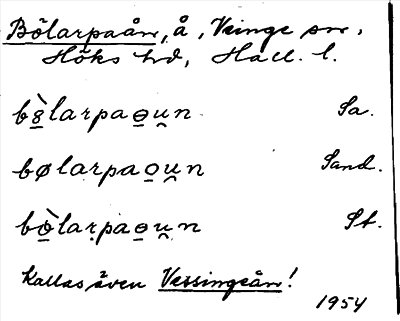 Bölarpaån, å, Veinge sn,
Höks hd, Hall. l.
bò̱larpao̱u̯n Sa.
bølarpao̱u̯n Sand.
bò̱laṛpao̱u̯n St.
Kallas även Vessingeån!
1954